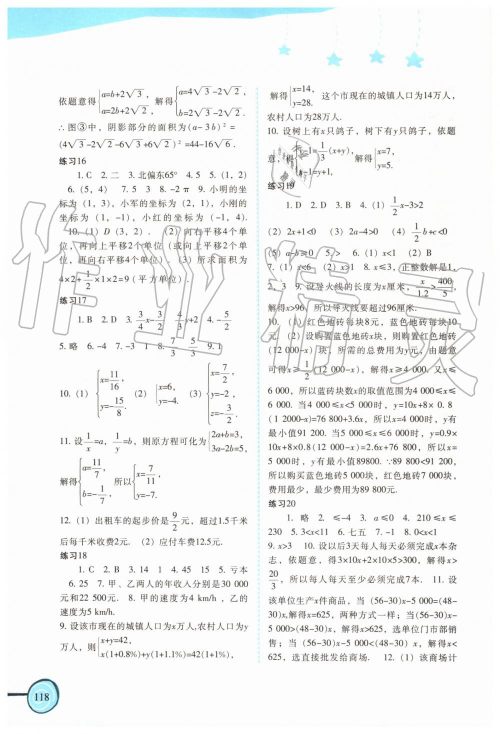 依题意得{a=b+2√3, a=2b+2√2. 解得{a=4√3-2√2, b=2√3-2√2.
∴图③中，阴影部分的面积为(a-3b)²=
(4√3-2√2-6√3+6√2)²=44-16√6.
练习16
1. C 2. 二 3. 北偏东65° 4. 5 5. (1, 2)
6. (5, 4) 7. 5 3 8. -2 π 9. 小明的坐
标为(1, 3), 小军的坐标为(1, -2), 小刚的
坐标为(-1, -1), 小红的坐标为(-1, 4).
10. (1) D (3, 2). (2) 向右平移4个单
位，再向上平移2个单位（或向上平移2个单
位，再向右平移4个单位）. (3) 所求面积为
4×2+1/2×1×2=9 (平方单位).
练习17
1. B 2. D 3.
5. 略 6. -4 7. -3 1 8. 7/3 5/3 9. 1
10. (1) {x=11/16, y=-15/8. (2) {x=6, y=-4. (3) {x=7/2, y=-2, z=-3/2.
11. 设1/x=a, 1/y=b, 则原方程可化为{2a+b=3, 3a-2b=5,
解得 所以
12. (1) 出租车的起步价是9/2元，超过1.5千米
后每千米收费2元. (2) 应付车费12.5元.
练习18
1. C 2. B 3. 14 1 4. 45 15 5. 亏本
6. 25 7. 甲、乙两人的年收入分别是30 000
元和22 500元. 8. 甲的速度为4 km/h, 乙的
速度为5 km/h.
9. 设该市现在的城镇人口为x万人,农村人口为y
万人，则{x+y=42, x(1+0.8%)+y(1+1.1%)=42(1+1%),
解得{x=14, y=28. 这个市现在的城镇人口为14万人,
农村人口为28万人.
10. 设树上有x只鸽子，树下有y只鸽子，依题
意，得{y-1=1/3(x+y), x-1=y+1, 解得{x=7, y=5.
练习19
1. D 2. D 3. B 4. (1) 1/2x-3>2
(2) 2x+1<0 (3) 2a-4>0 (4) 1/2b+c<0
(5) a-b≥0 5. > 6. (1) x<1 (2) B
7. (1) x<6 (2) x>1 8. x≤3, 正整数解是1,
2, 3 9. 设导火线的长度为x厘米, x/1.2>400/5
解得x>96. 所以导火线要超过96厘米.
10. (1) 红色地砖每块8元，蓝色地砖每块10
元. (2) 设购置蓝色地砖x块，则购置红色地砖
(12 000-x) 块，所需的总费用为y元，由题意
可得x≥1/2(12 000-x), 解得x≥4 000, 又x≤
6 000, 所以蓝砖块数x的取值范围为4 000≤x≤
6 000. 当4 000≤x<5 000时, y=10x+8×0.8
(1 2000-x)=76 800+3.6x, 所以x=4 000时, y有
最小值91 200. 当5 000≤x≤6 000时, y=0.9×
10x+8×0.8(12 000-x)=2.6x+76 800, 所以x=
5 000时, y有最小值89800. ∵89 800<91 200,
所以购买蓝色地砖5 000块，红色地砖7 000块,
费用最少，最少费用为89 800元.
练习20
1. 略 2. ≤-4 3. a≤0 4. 210≤x≤
230 5. 3<x<11 6. 七五 7. -1 8. 0<x<1
9. x>3 10. 设以后3天每人每天必须完成x本杂
志，依题意，得3×10x+2×10×5>300, 解得x>
20/3, 所以每人每天至少必须完成7本. 11. 设
该单位生产x件商品，当(56-30)x-5 000=(48-
30)x,解得x=625, 两种方式一样；当(56-30)x-
5 000>(48-30)x, 解得x>625, 选单位门市部销
售；当(56-30)x-5 000<(48-30)x, 解得x<
625, 选直接批发给商场. 12. (1) 该商场计
118
作业精灵